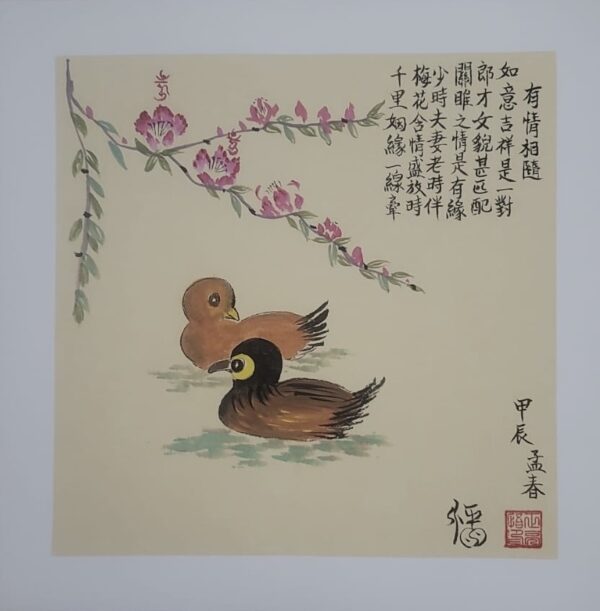 有情相隨
如意吉祥是一對
郎才女貌甚匹配
關雎之情是有緣
少時夫妻老時伴
梅花含情盛放時
千里姻緣一線牽
甲辰
孟春